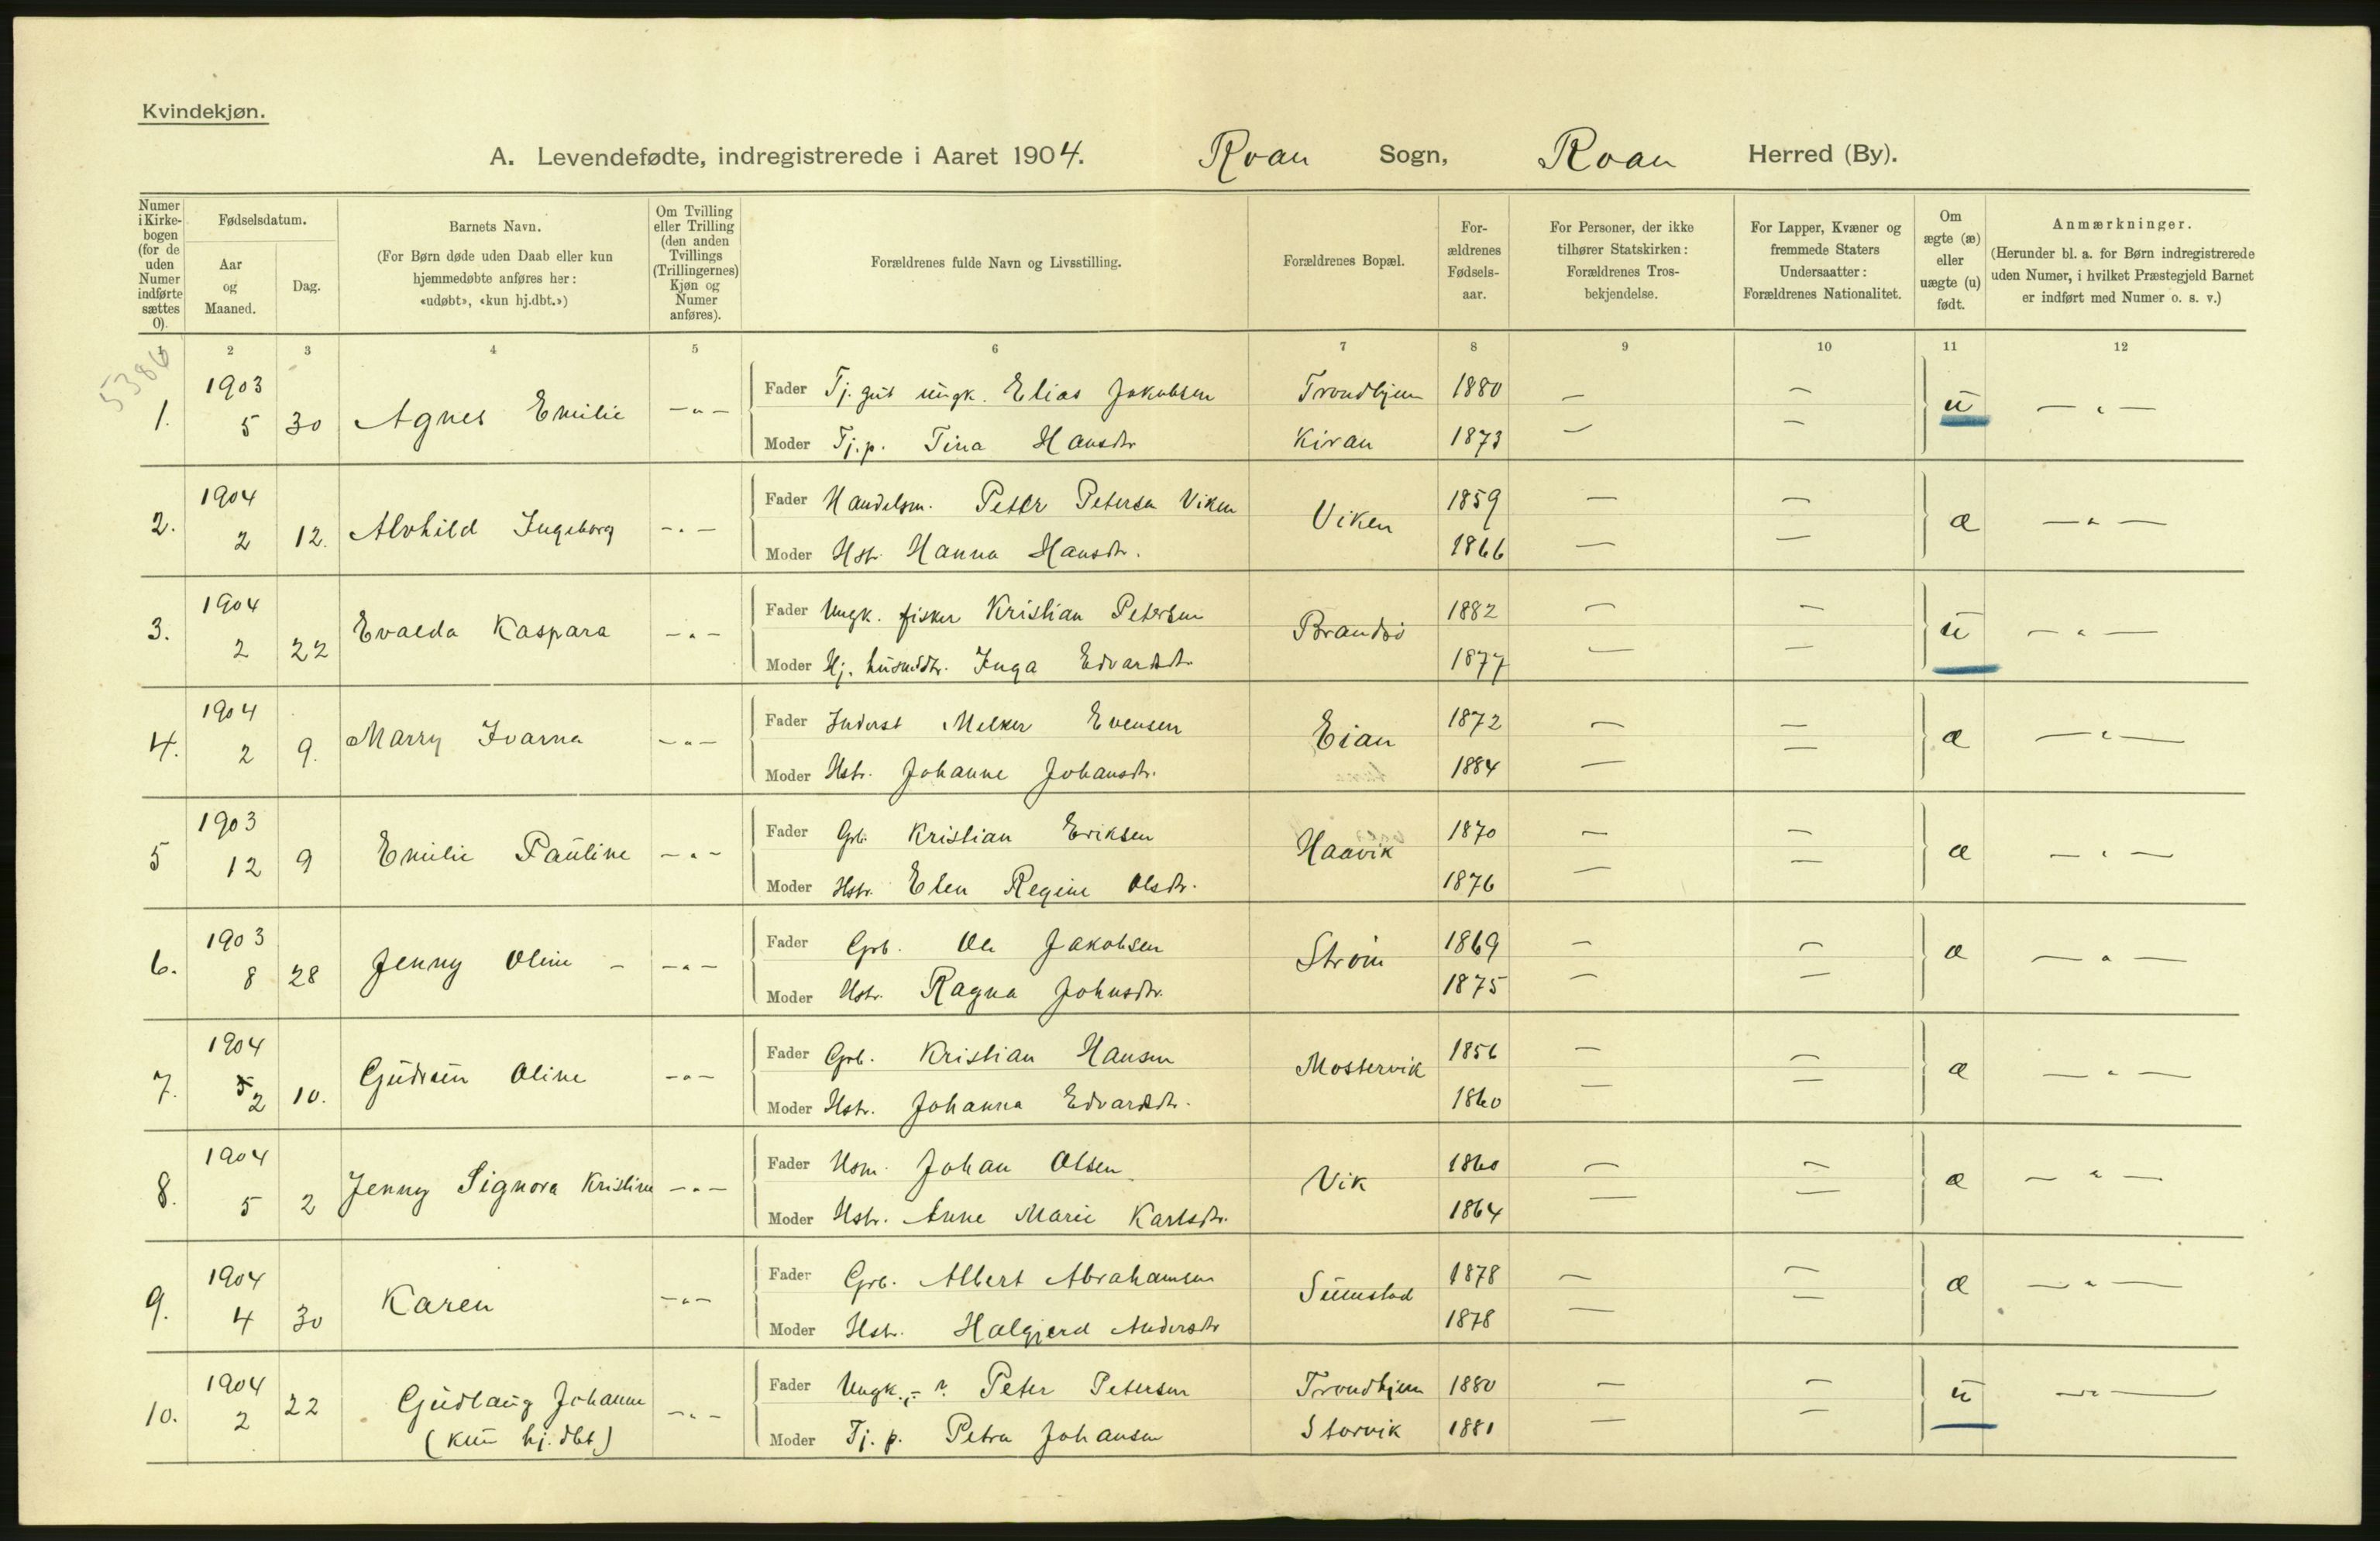 Kvindekjøn.
A. Levendefødte, indregistrerede i Aaret 1904. Roan Sogn, Roan Herred (By).
Numer i Kirke-bogen (for de uden Numer indførte sættes 0).
Fødselsdatum.
Aar og Maaned.
Dag.
Barnets Navn.
(For Børn døde uden Daab eller kun
hjemmedøbte anføres her:
«udøbt», «kun hj.dbt.»)
Om Tvilling
eller Trilling
(den anden
Tvillings
(Trillingernes)
Kjøn og
Numer
anføres).
Forældrenes fulde Navn og Livsstilling.
Forældrenes Bopæl.
For-
ældrenes
Fødsels-
aar.
For Personer, der ikke
tilhører Statskirken:
Forældrenes Tros-
bekjendelse.
For Lapper, Kvæner og
fremmede Staters
Undersaatter:
Forældrenes Nationalitet.
Om
ægte (æ)
eller
uægte (u)
født.
Anmærkninger.
(Herunder bl. a. for Børn indregistrerede
uden Numer, i hvilket Præstegjeld Barnet
er indført med Numer o. s. v.)
1 2 3 4 5 6 7 8 9 10 11 12
5386
1. 1903 5 30 Agnes Emilie -"- Fader Tj. gut ungk. Elias Jakobsen Trondhjem 1880 — — u — " —
Moder Tj. p. Tina Hansdtr Kiran 1873 — —
2. 1904 2 12. Alvhild Ingeborg -"- Fader Handelsm. Peter Petersen Viken Viken 1859 — — æ — " —
Moder Hstr. Hanna Hansdtr. 1866 — —
3. 1904 2 22 Evalda Kaspara -"- Fader Ungk. fisker Kristian Petersen Brandsø 1882 — — u — " —
Moder Hj. husmdtr. Inga Edvardsdtr. 1877 — —
4. 1904 2 9. Marry Ivarna -"- Fader Inderst Melker Evensen Eian 1872 — — æ — " —
Moder Hstr. Johanne Johansdtr. 1884 — —
5 1903 12 9 Emilie Pauline -"- Fader Grb. Kristian Eriksen Haavik 1870 — — æ — " —
Moder Hstr. Elen Regine Olsdtr. 1876 — —
6. 1903 8 28 Jenny Oline - -"- Fader Grb. Ole Jakobsen Strøm 1869 — — æ — " —
Moder Hstr. Ragna Johnsdtr. 1875 — —
7. 1904 2 10. Gudrun Oline -"- Fader Grb. Kristian Hansen Mostervik 1856 — — æ — " —
Moder Hstr. Johanna Edvardsdtr. 1860 — —
8. 1904 5 2 Jenny Signora Kristine -"- Fader Hsm. Johan Olsen Vik 1860 — — æ — " —
Moder Hstr. Anne Marie Karlsdtr. 1864 — —
9. 1904 4 30 Karen -"- Fader Grb. Albert Abrahamsen Sumstad 1878 — — æ — " —
Moder Hstr. Halgjerd Andersdtr 1878 — —
10. 1904 2 22 Gudlaug Johanne -"- Fader Ungk., - ?. Peter Petersen Trondhjem 1880 — — u — " —
(kun hj. dbt.) Moder Tj. p. Petra Johansen Storvik 1881 — —